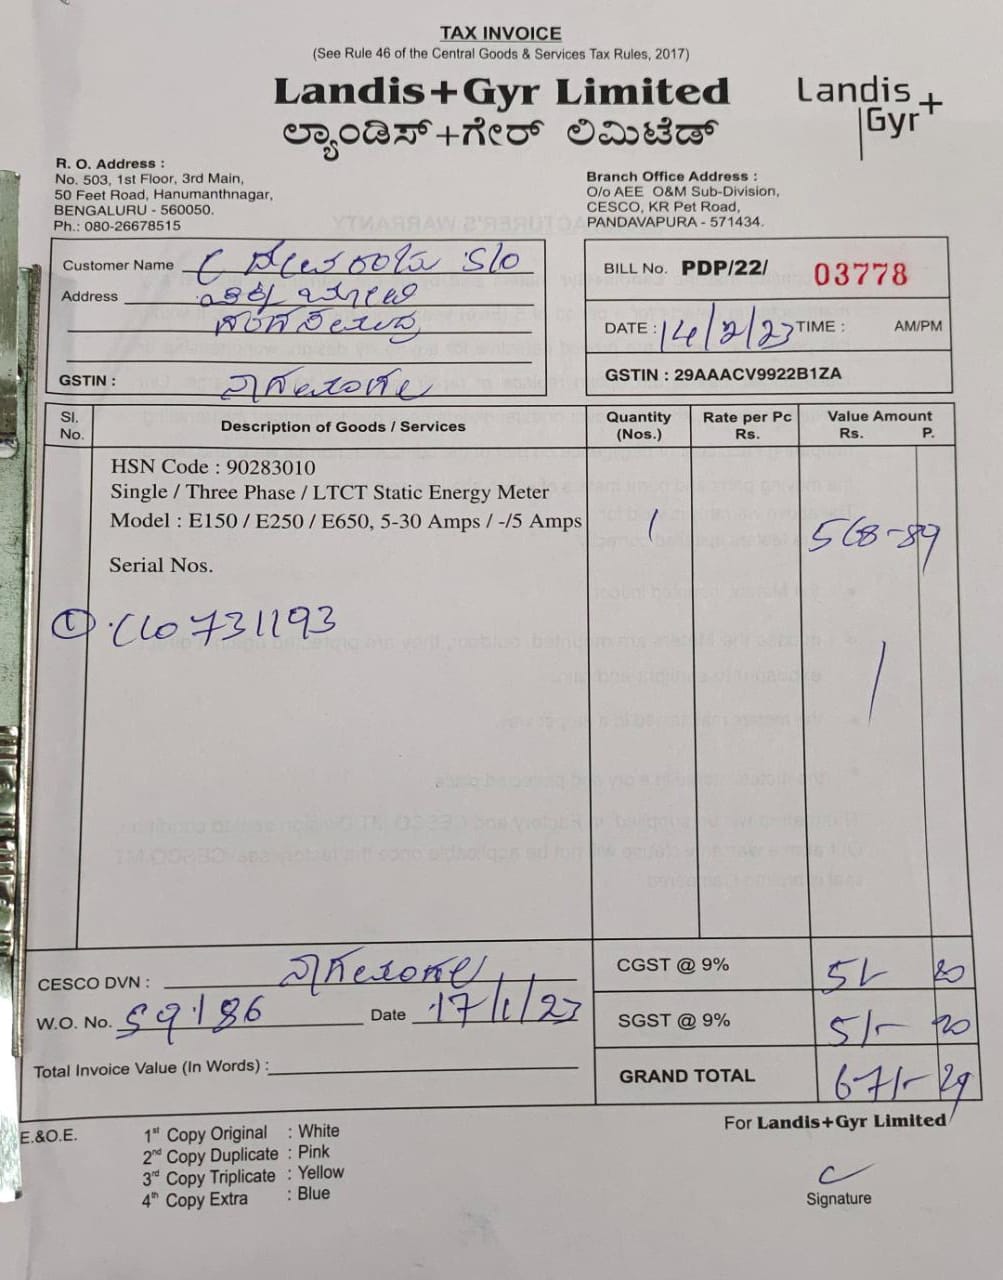 TAX INVOICE
(See Rule 46 of the Central Goods & Services Tax Rules, 2017)
Landis+Gyr Limited
ಲ್ಯಾಂಡಿಸ್+ಗೇರ್ ಲಿಮಿಟೆಡ್
Landis
Gyr+
R. O. Address :
No. 503, 1st Floor, 3rd Main,
50 Feet Road, Hanumanthnagar,
BENGALURU - 560050.
Ph.: 080-26678515
Branch Office Address :
O/o AEE O&M Sub-Division,
CESCO, KR Pet Road,
PANDAVAPURA - 571434.
Customer Name S/O
Address
GSTIN : ನಾಗಮಂಗಲ
BILL No. PDP/22/ 03778
DATE : 14/2/23 TIME : AM/PM
GSTIN : 29AAACV9922B1ZA
Sl. No. Description of Goods / Services Quantity (Nos.) Rate per Pc Rs. Value Amount Rs. P.
HSN Code : 90283010
Single / Three Phase / LTCT Static Energy Meter
Model : E150 / E250 / E650, 5-30 Amps / -/5 Amps 1 568-89
Serial Nos.
① 731193
CESCO DVN : ನಾಗಮಂಗಲ
W.O. No. 59186 Date 17/1/23
Total Invoice Value (In Words) :
CGST @ 9% 51- 20
SGST @ 9% 51- 20
GRAND TOTAL 671- 29
E.&O.E.
1st Copy Original : White
2nd Copy Duplicate : Pink
3rd Copy Triplicate : Yellow
4th Copy Extra : Blue
For Landis+Gyr Limited
Signature